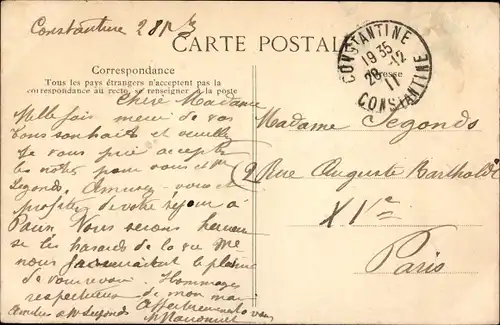 Constantine 28
CARTE POSTALE
CONSTANTINE
19 35
28 -12
11
CONSTANTINE
Correspondance
Tous les pays étrangers n'acceptent pas la
correspondance au recto, se renseigner à la poste
Adresse
Chère Madame
Mille fois merci de vos
bons souhaits et veuillez
je vous prie accepter
les nôtres pour vous et
Segonds, Amusez-vous et
profitez de votre séjour à
Paris. Nous serons heureux
si les hasards de la vie
nous le plaisir
de vous revoir. Hommages
respectueux de mon mari
Affectueusement à vous
Amitiés à Mr Segonds
Madame Segonds
2 Rue Auguste Bartholdi
XVe
Paris